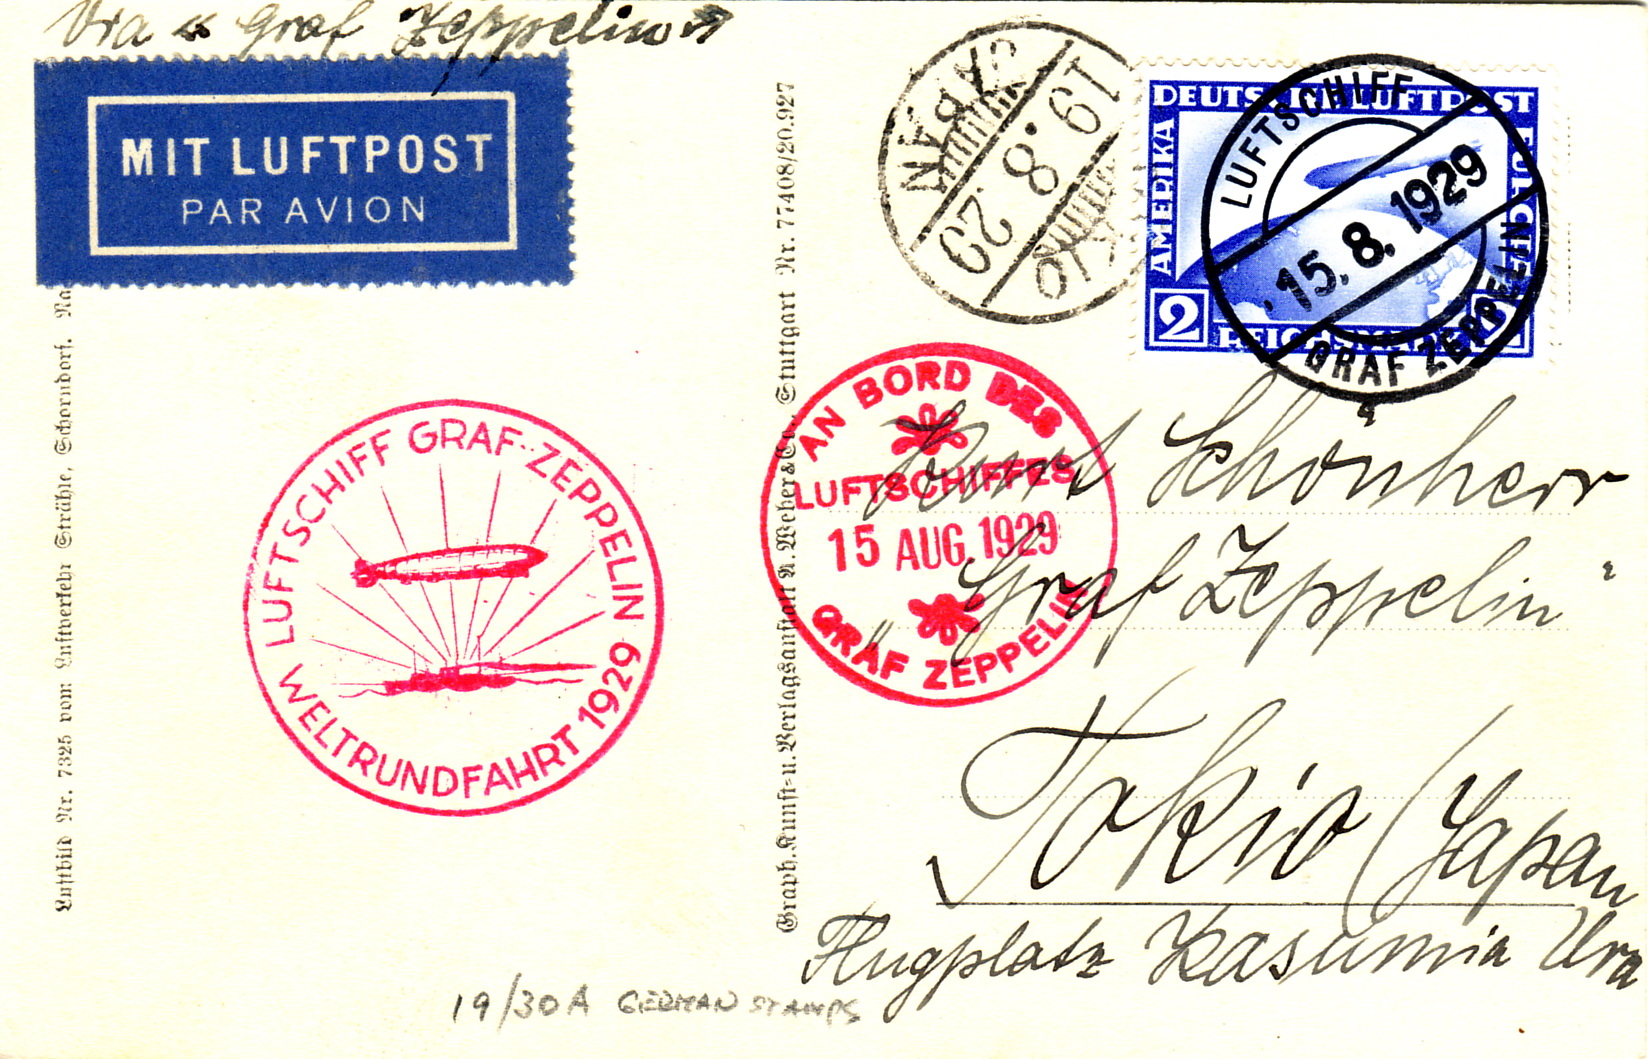 Via « Graf Zeppelin »
MIT LUFTPOST
PAR AVION
19.8.29
DEUTSCHE LUFTPOST
AMERIKA
EUROPA
2
REICHSMARK
LUFTSCHIFF
15.8.1929
GRAF ZEPPELIN
LUFTSCHIFF GRAF-ZEPPELIN
WELTRUNDFAHRT 1929
AN BORD DES
LUFTSCHIFFES
15 AUG. 1929
GRAF ZEPPELIN
Schönherr
"Graf Zeppelin"
Tokio (Japan
Flugplatz Kasumia Ura
Luftbild Nr. 7325 vom Luftverkehr Strähle, Schorndorf.
Graph. Kunst- u. Verlagsanstalt A. Weber & Co., Stuttgart Nr. 77408/20.927
19/30A GERMAN STAMPS